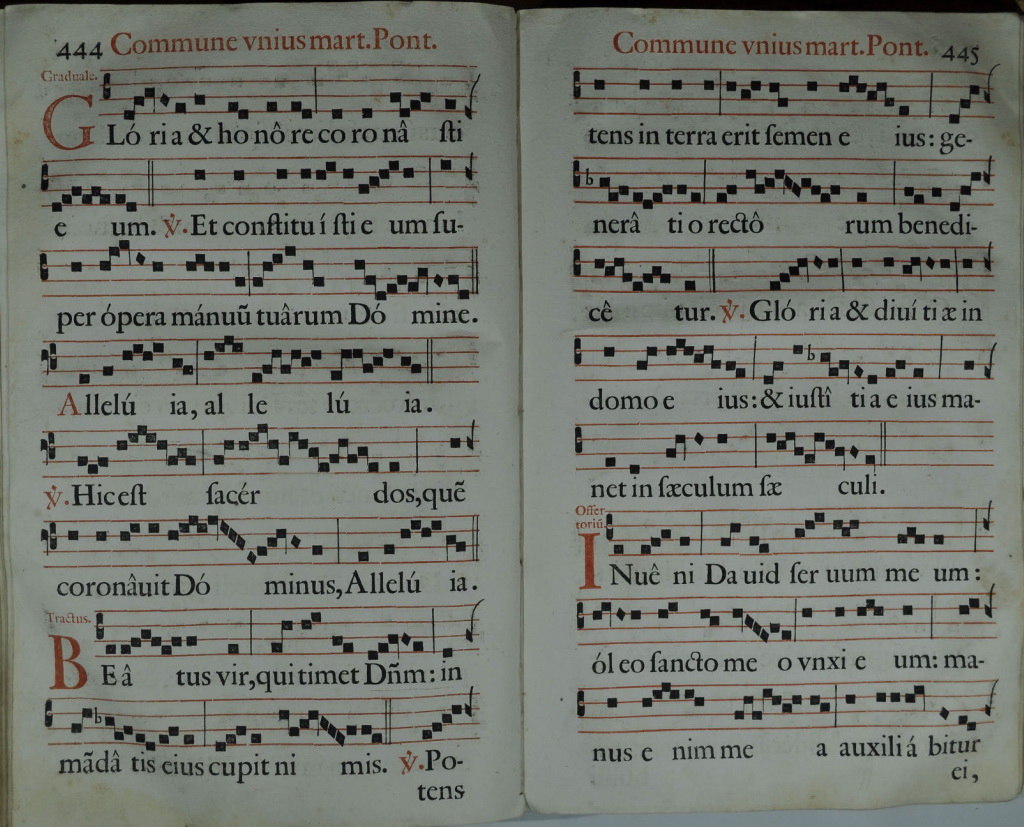 444 Commune vnius mart. Pont.
Graduale.
GLó ri a & ho nô re co ro nâ ſti
e um. ℣. Et conſtitu í ſti e um ſu-
per ópera mánuũ tuârum Dó mine.
Allelú ia, al le lú ia.
℣. Hic eſt ſacér dos, quẽ
coronâuit Dó minus, Allelú ia.
Tractus.
BEâ tus vir, qui timet Dñm: in
mãdâ tis eius cupit ni mis. ℣. Po-
tens
Commune vnius mart. Pont. 445
tens in terra erit ſemen e ius: ge-
nerâ ti o rectô rum benedi-
cê tur. ℣. Gló ri a & diuí ti æ in
domo e ius: & iuſtî ti a e ius ma-
net in ſæculum ſæ culi.
Offer-
toriũ.
INuê ni Da uid ſer uum me um:
ól eo ſancto me o vnxi e um: ma-
nus e nim me a auxili á bitur
ei,